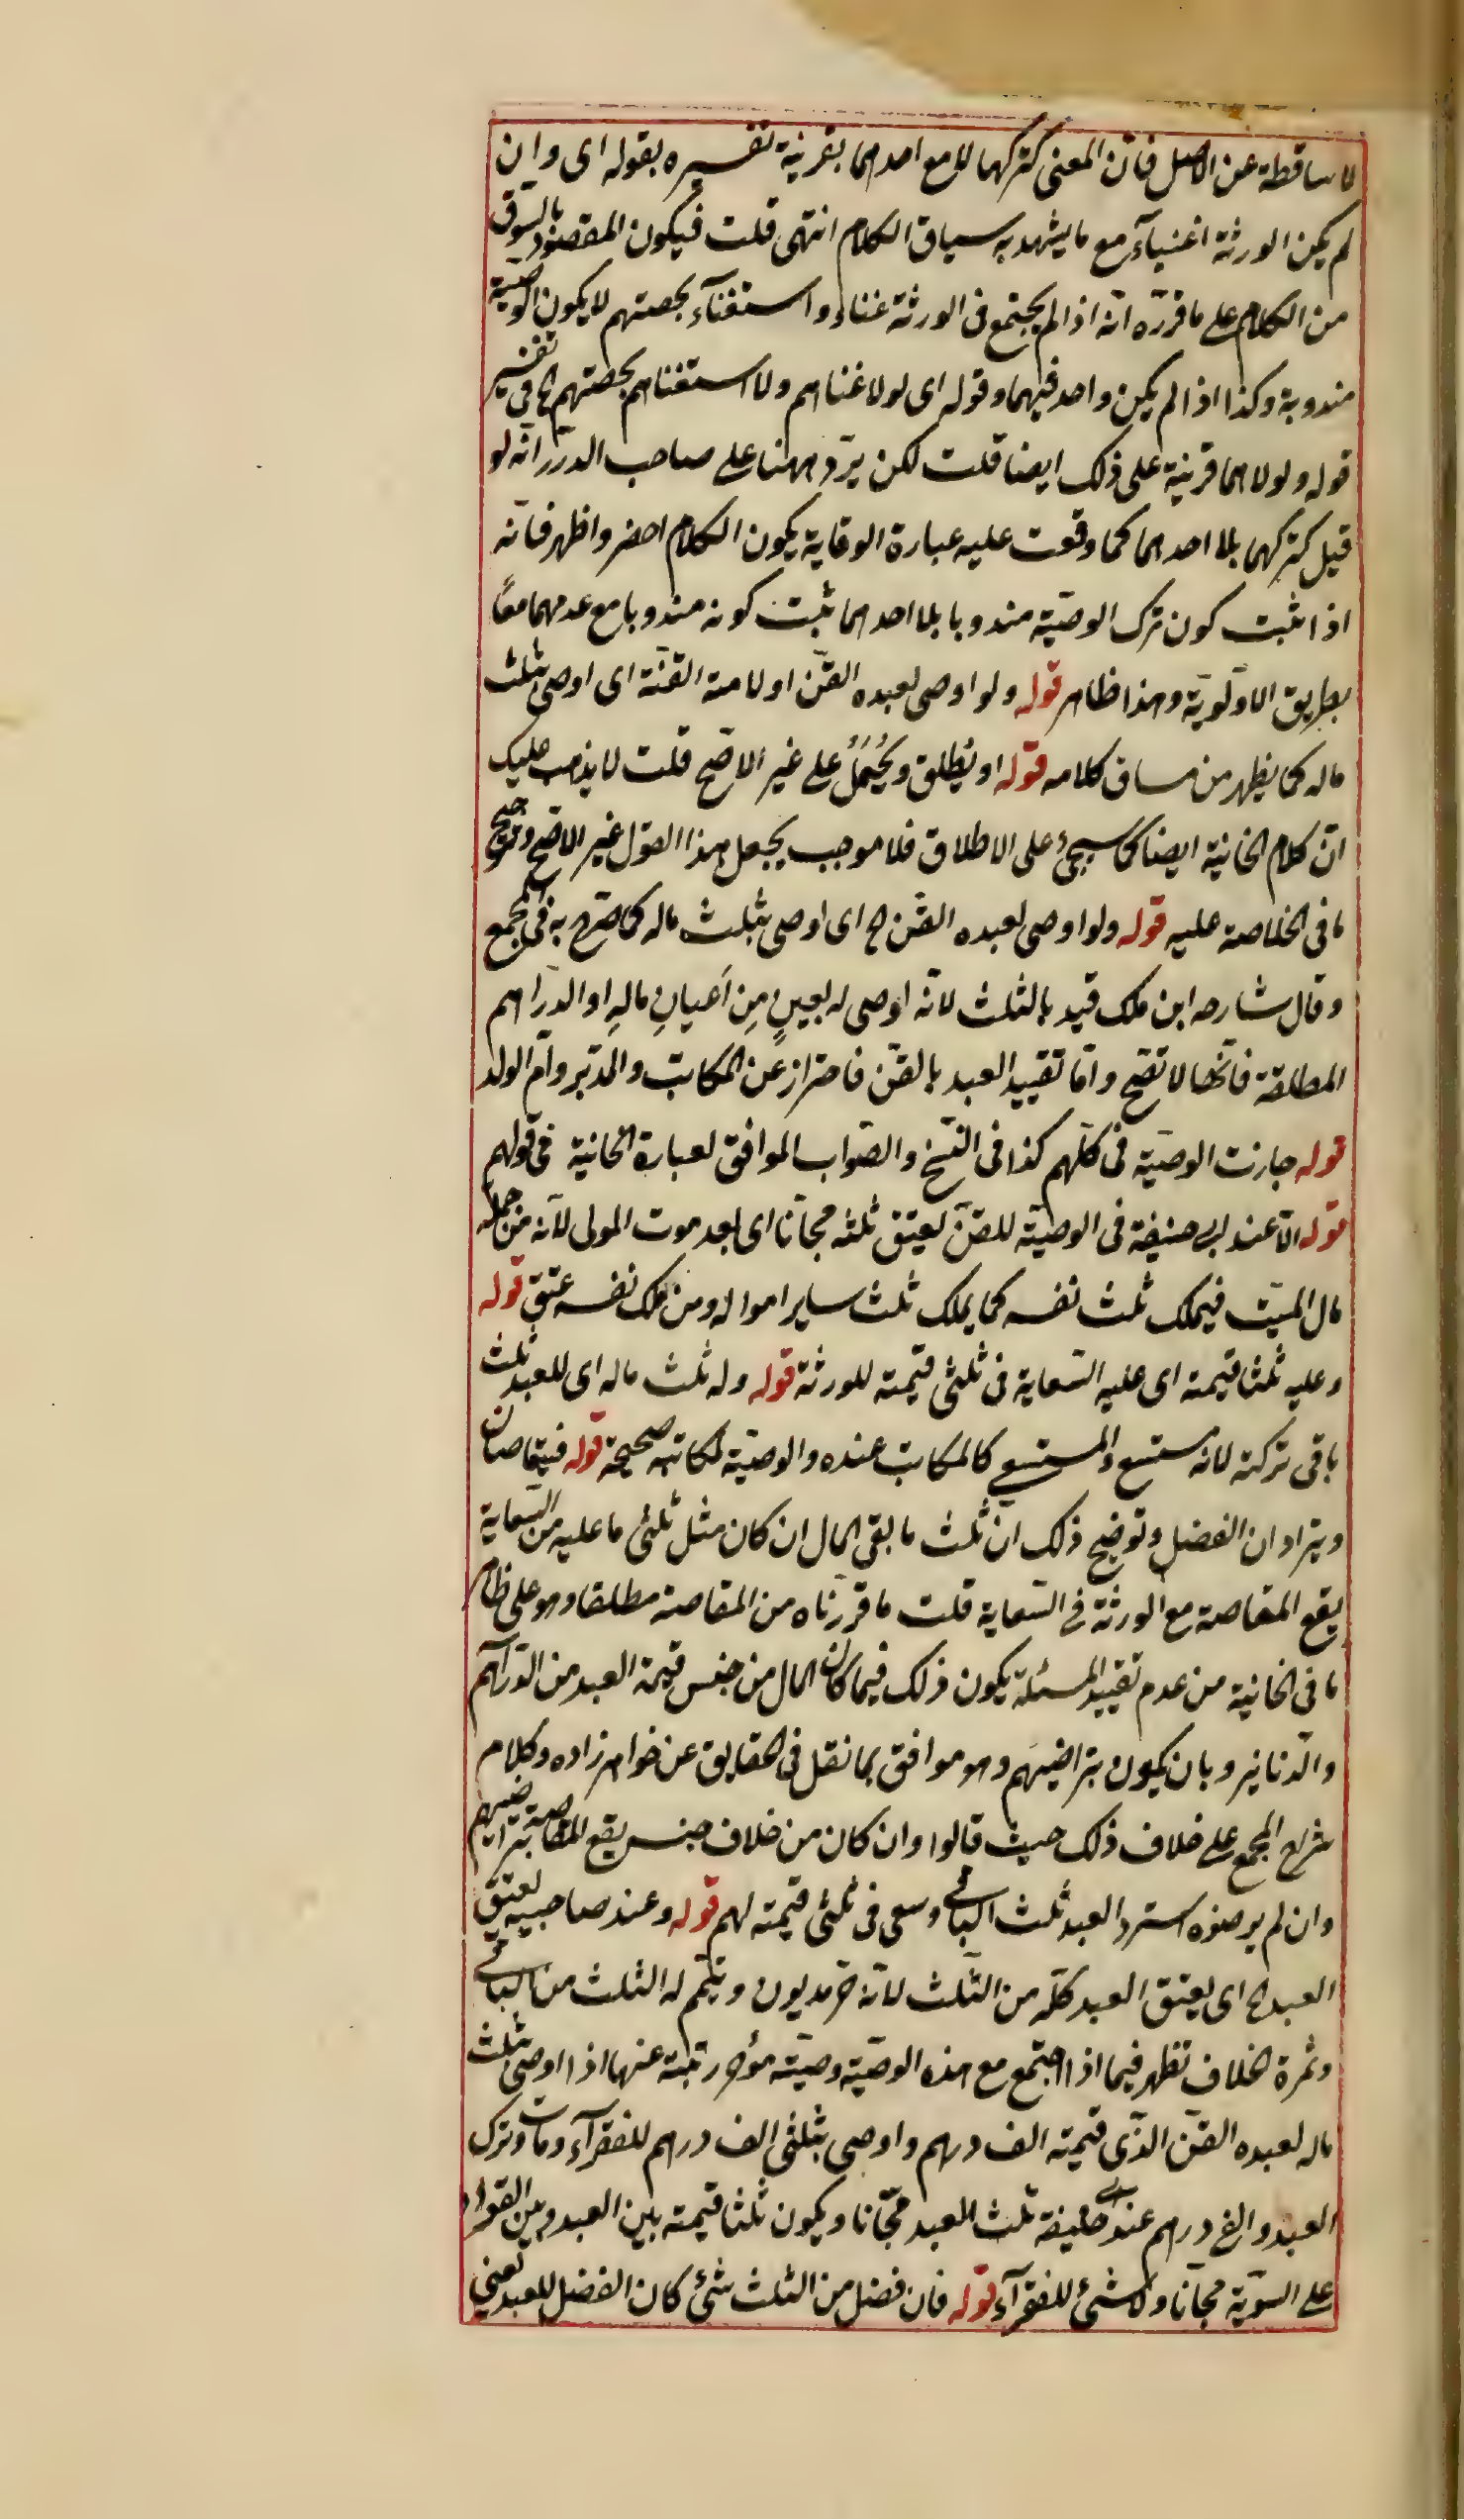 لا ساقطة عن الاصل فانّ المعنى كتركهما لا مع احدهما بقرينة تفسيره بقوله اى وان
لم يكن الورثة اغنيآء مع ما يشهد به سياق الكلام انتهى قلت فيكون المقصود بالسّوق
من الكلام على ما قرّره انّه اذا لم يجتمع فى الورثة غناء واستغنآء بحصتهم لا يكون الوصية
مندوبة وكذا اذا لم يكن واحد فيهما وقوله اى لولا غناهم ولا استغناهم بحصّتهم الخ فى تفسير
قوله ولولاهما قرينة على ذلك ايضا قلت لكن يرد ههنا على صاحب الدرر انّه لو
قيل كتركهما بلا احدهما كما وقعت عليه عبارة الوقاية يكون الكلام احضر واظهر فانّه
اذا ثبت كون ترك الوصيّة مندوبا بلا احدهما ثبت كونه مندوبا مع عدمهما معًا
بطريق الاوّلويّة وهذا ظاهر قوله ولو اوصى لعبده القنّ او لامته القنّة اى اوصى بثلث
ماله كما يظهر من مساق كلامه قوله او يُطلق ويُحْمَلُ على غير الاصّح قلت لا يذهب عليك
انّ كلام الخانية ايضا كما سيجئ على الاطلاق فلا موجب لجعل هذا القول غير الاصّح وترجيح
ما فى الخلاصة عليه قوله ولو اوصى لعبده القّن الخ اى اوصى بثلث ماله كما صرّح به فى المجمع
وقال شارحه ابن ملك قيد بالثلث لانّه اوصى له بعينٍ مِن اَعيانِ مالهِ او الدرَاهم
المطلقة فانّها لا تصّح وامّا تقييد العبد بالقنّ فاحتراز عن المكاتب والمدّبر وامّ الولد
قوله جازت الوصيّة فى كلّهم كذا فى النسّخ والصّواب الموافق لعبارة الخانية فى قولهم
قوله الّا عند ابى حنيفة فى الوصيّة للقنّ يعتق ثلثه مجّانا اى بعد موت المولى لانّه من جملة
مال الميّت فيملك ثلث نفسه كما يملك ثلث ساير امواله ومن ملك نفسه عتق قوله
وعليه ثلثا قيمته اى عليه السّعاية فى ثلثى قيمته للورثة قوله وله ثلث ماله اى للعبد ثلث
باقى تركته لانّه مستسع والمستسعى كالمكاتب عنده والوصيّة لمكاتبه صحيحة قوله فيتقاصان
ويترادان الفضل وتوضيح ذلك انّ ثلث ما بقى المال ان كان مثل ثلثى ما عليه من السّعاية
يقع المقاصة مع الورثة فى السّعاية قلت ما قررناه من المقاصة مطلقا وهو على ظاهر
ما فى الخانية من عدم تقييد المسئلة يكون ذلك فيما كان المال من جنس قيمة العبد من الدّراهم
والدّنانير وبان يكون بتراضيهم وهو موافق بما نقل فى الحقايق عن خواهر زاده وكلام
شراح المجمع على خلاف ذلك حيث قالوا وان كان من خلاف جنس يقع المقاصة بتراضيهم
وان لم يرضوه استرد العبد ثلث الباقى وسعى فى ثلثى قيمته لهم قوله وعند صاحبيه يعتق
العبد الخ اى يعتق العبد كلّه من الثّلث لانّه حّر مديون ويتّمم له الثلث من الباقى
وثمرة الخلاف تظهر فيما اذا اجتمع مع هذه الوصيّة وصيّة مؤخر رتبة عنها اذا اوصى بثلث
ماله لعبده القنّ الذّى قيمته الف درهم واوصى بثلثى الف درهم للفقرآء ومات وترك
العبد والف درهم عند ابى حنيفة ثلث العبد مجّانا ويكون ثلثا قيمته بين العبد وبين الفقراء
على السويّة مجّانا ولا شئ للفقرآء قوله فان فضل من الثلث شئ كان الفضل للعبد يعنى